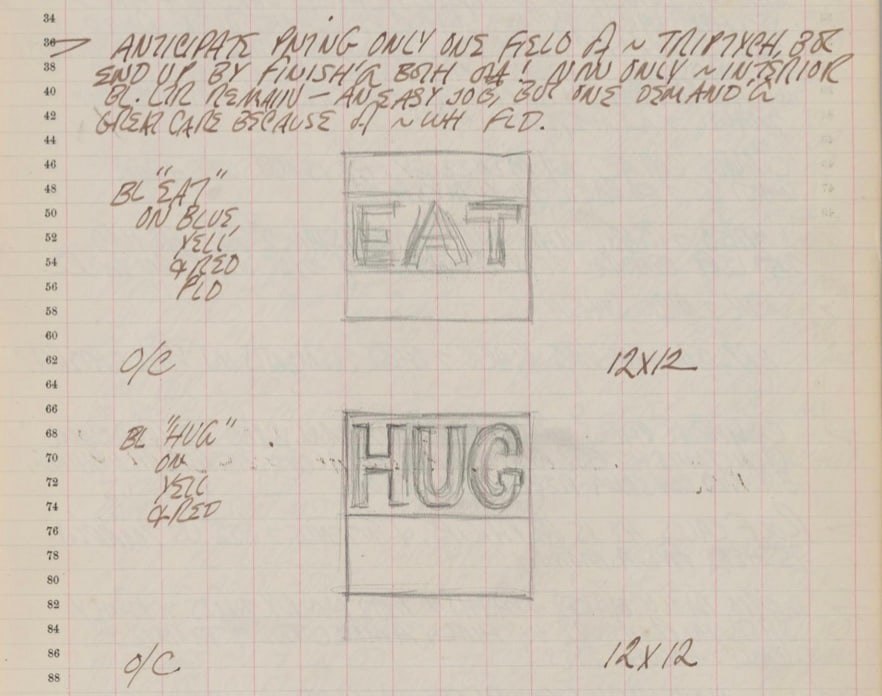 34
36 ANTICIPATE PNTING ONLY ONE FIELD OF ~ TRIPTYCH, BUT
38 END UP BY FINISH'G BOTH NOW ONLY ~ INTERIOR
40 BL. REMAIN — AN EASY JOB, BUT ONE DEMAND'G
42 GREAT CARE BECAUSE OF ~ WH FLD.
44
46
48 BL "EAT"
50 ON BLUE,
EAT
52 YELL
54 & RED
56 FLD
58
60
62 O/C 12X12
64
66
68 BL "HUG"
70 ON
HUG
72 YELL
74 & RED
76
78
80
82
84
86 O/C 12X12
88